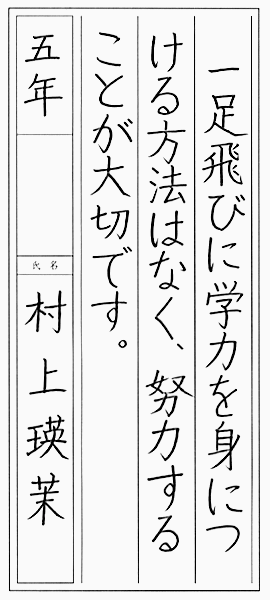 一足飛びに学力を身につ
ける方法はなく、努力する
ことが大切です。
五年
氏名
村上瑛茉